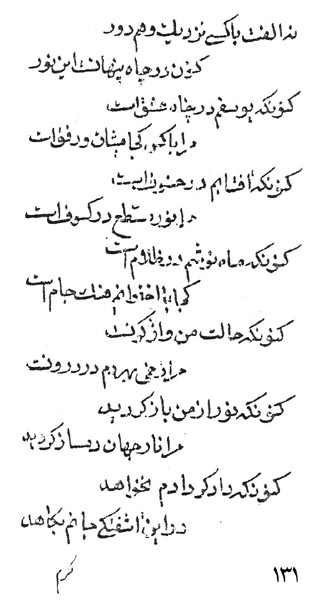 نه الفت با کسی نزدیک و هم دور
کزین در چاه پنهانست این نور
کنونکه یوسفم در چاه عشق است
مرا با کی کجا میثاق و رفق است
کنونکه آفتابم در حسوف است
مرا نور ساطع در کسوف است
کنونکه ماه نویم در ظلام است
کجا است
کنونکه حالت من واژگونست
مرا زخمی بهر دم در درونست
کنونکه نور از من باز گردید
مرا نار جهان دمساز گردید
کنونکه دادگر دادم نخواهد
در این آشفتگی جانم بکاهد
کرم
۱۳۱